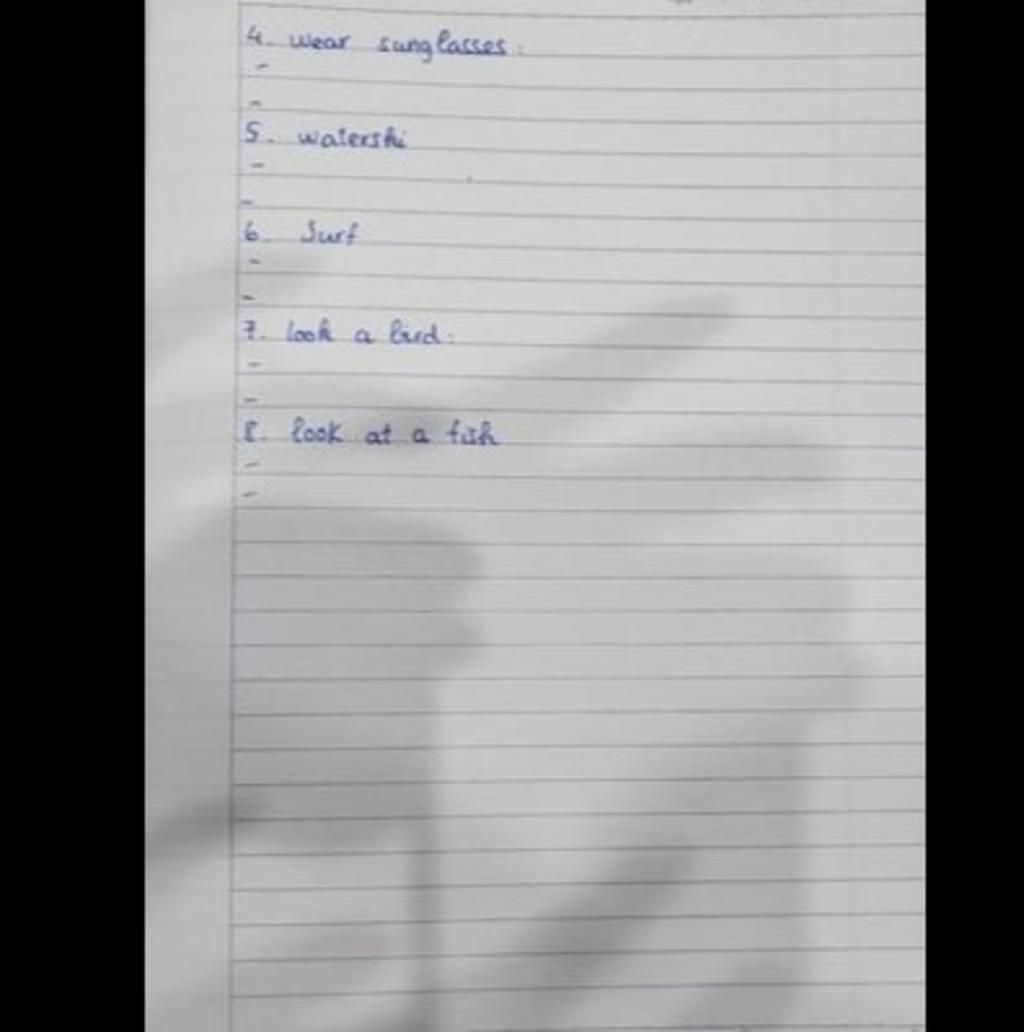 4. wear sunglasses:
-
-
5. waterski
-
-
6. Surf
-
-
7. look a bird:
-
-
8. look at a fish
-
-